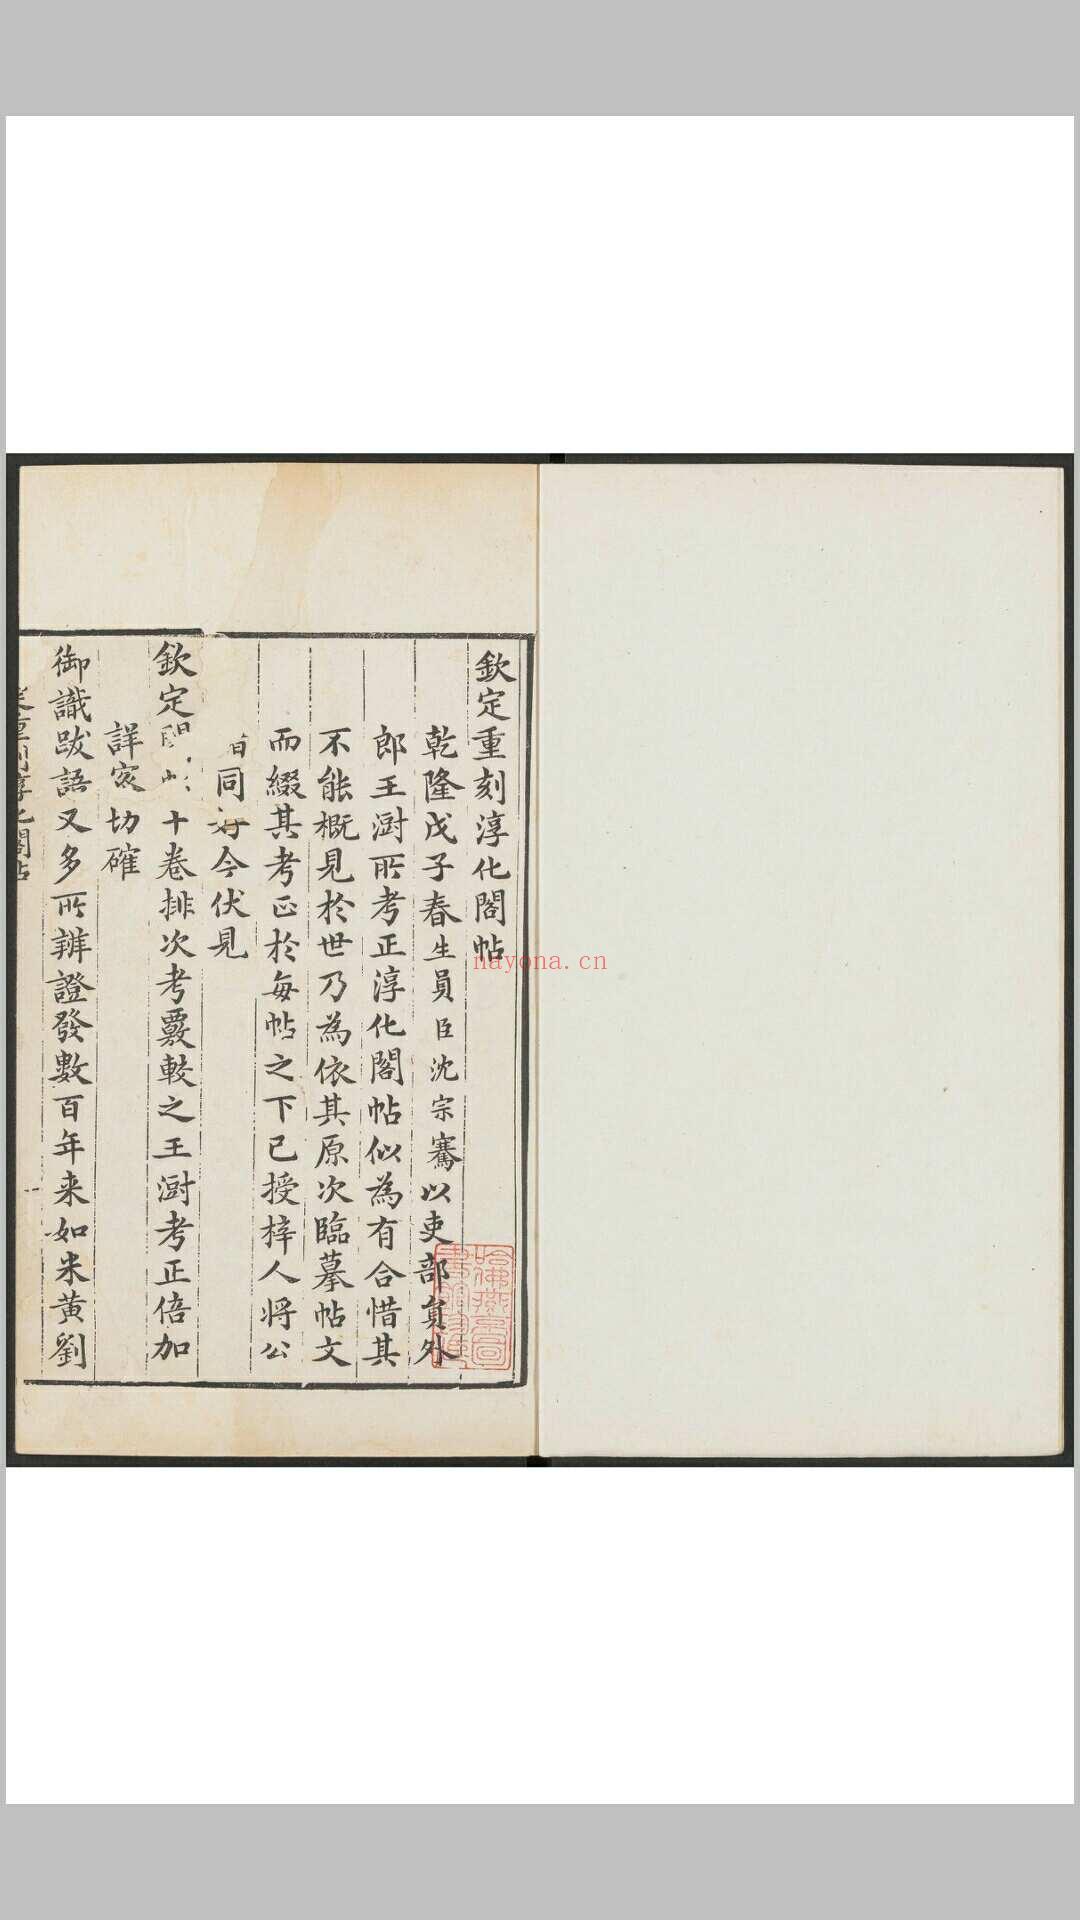 欽定重刻淳化閣帖
乾隆戊子春生員臣沈宗騫以吏部員外
郎王澍所考正淳化閣帖似為有合惜其
不能概見於世乃為依其原次臨摹帖文
而綴其考正於每帖之下已授梓人將公
同好今伏見
欽定十卷排次考覈較之王澍考正倍加
詳密切確
御識跋語又多所辨證發數百年来如米黃劉
哈佛燕京圖
nayona.cn